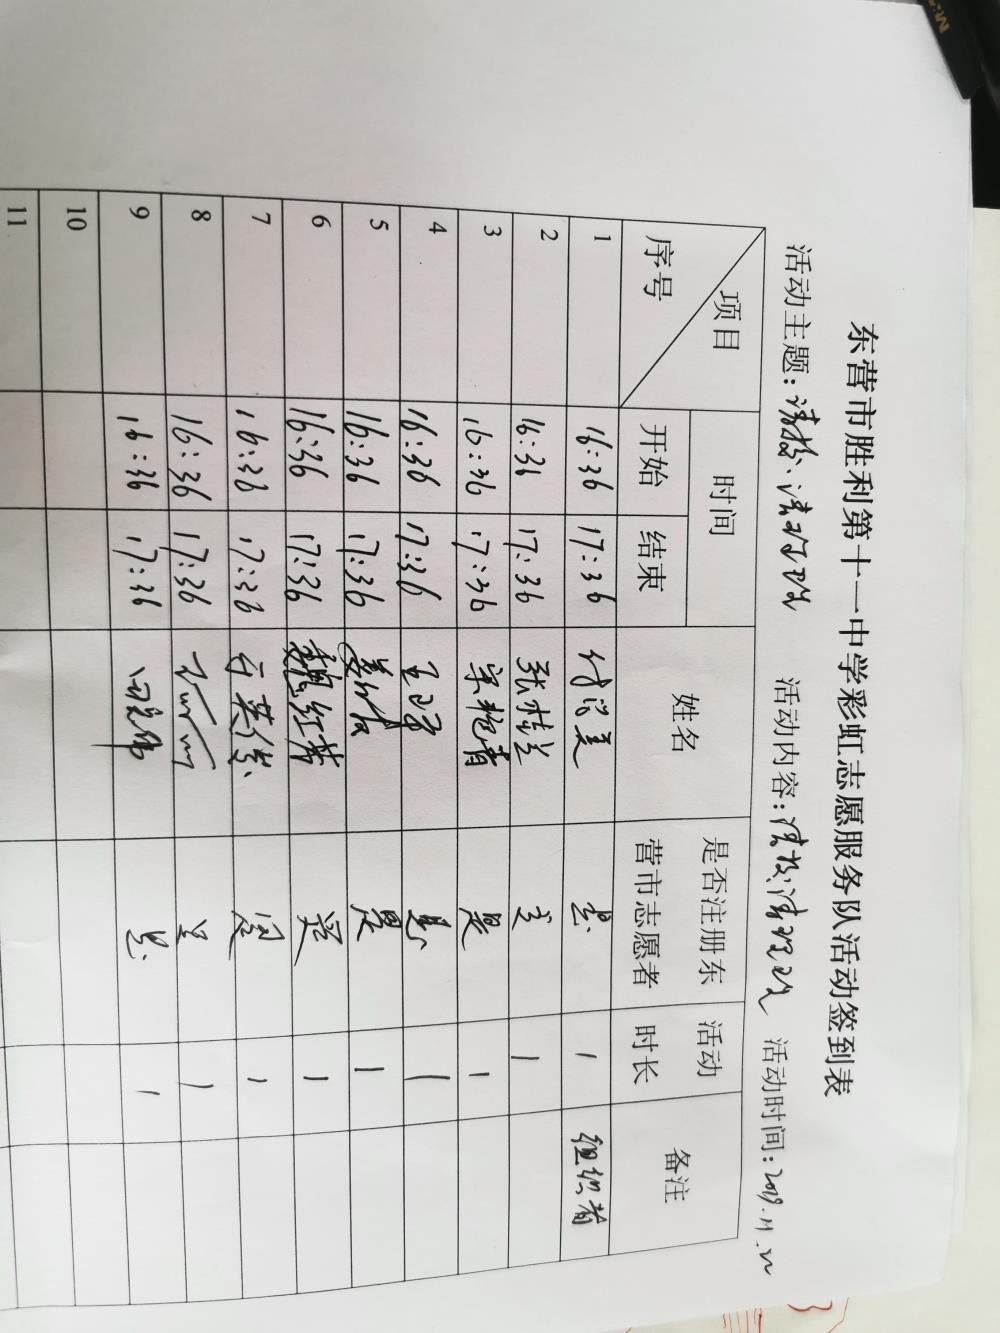 东营市胜利第十一中学彩虹志愿服务队活动签到表
活动主题: 活动内容: 活动时间:2019.11.22
项目 时间 姓名 是否注册东营市志愿者 活动时长 备注
序号 开始 结束
1 16:36 17:36 是 1 组织者
2 16:36 17:36 张桂兰 是 1
3 16:36 17:36 宋艳青 是 1
4 16:36 17:36 是 1
5 16:36 17:36 是 1
6 16:36 17:36 魏红菊 是 1
7 16:36 17:36 是 1
8 16:36 17:36 是 1
9 16:36 17:36 是 1
10
11